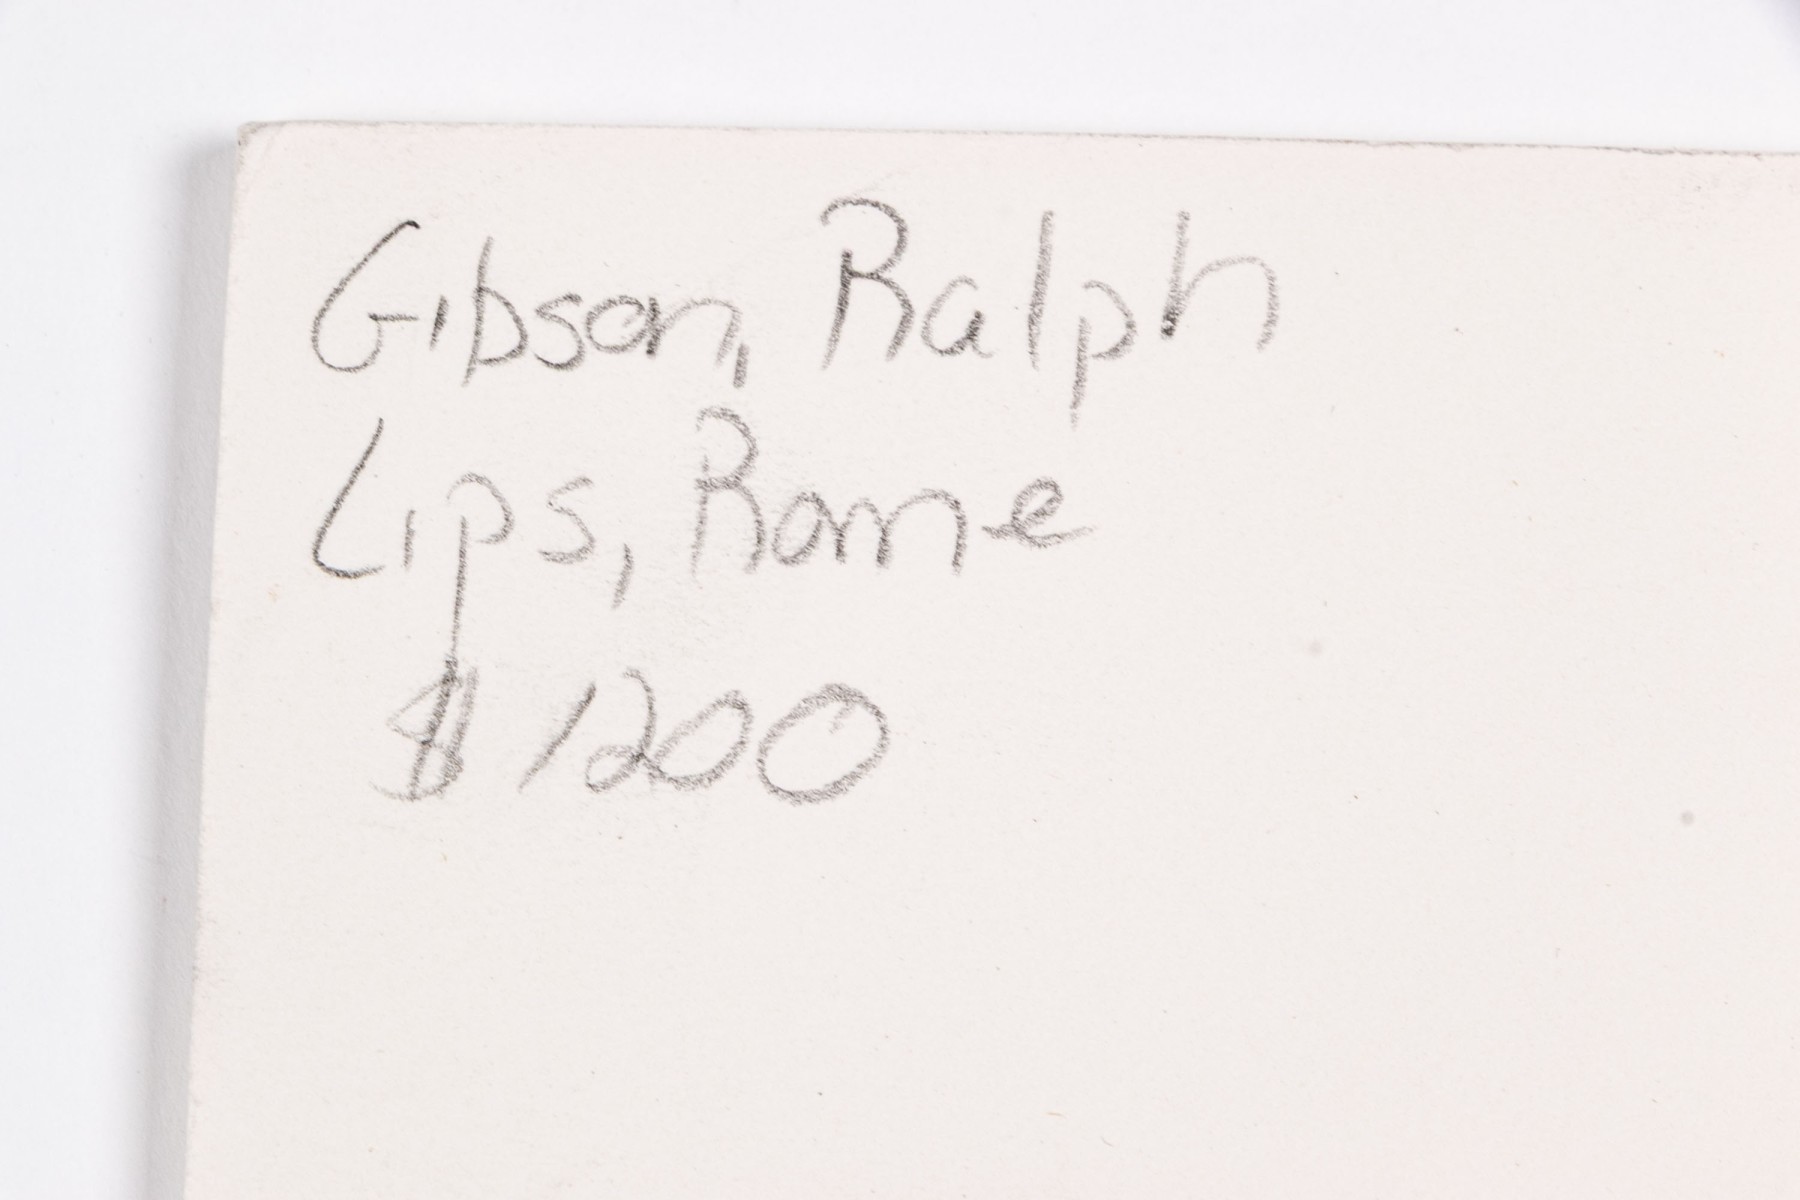 Gibson, Ralph
Lips, Rome
$1200